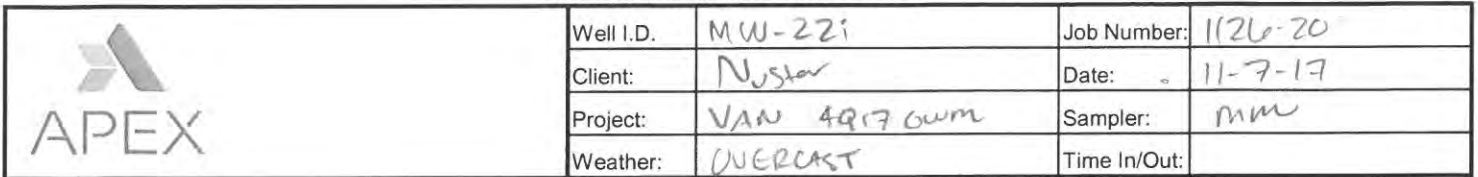 APEX
Well I.D. MW-22i Job Number: 1126-20
Client: Nustar Date: 11-7-17
Project: VAN 4Q17 GWM Sampler: MM
Weather: OVERCAST Time In/Out: